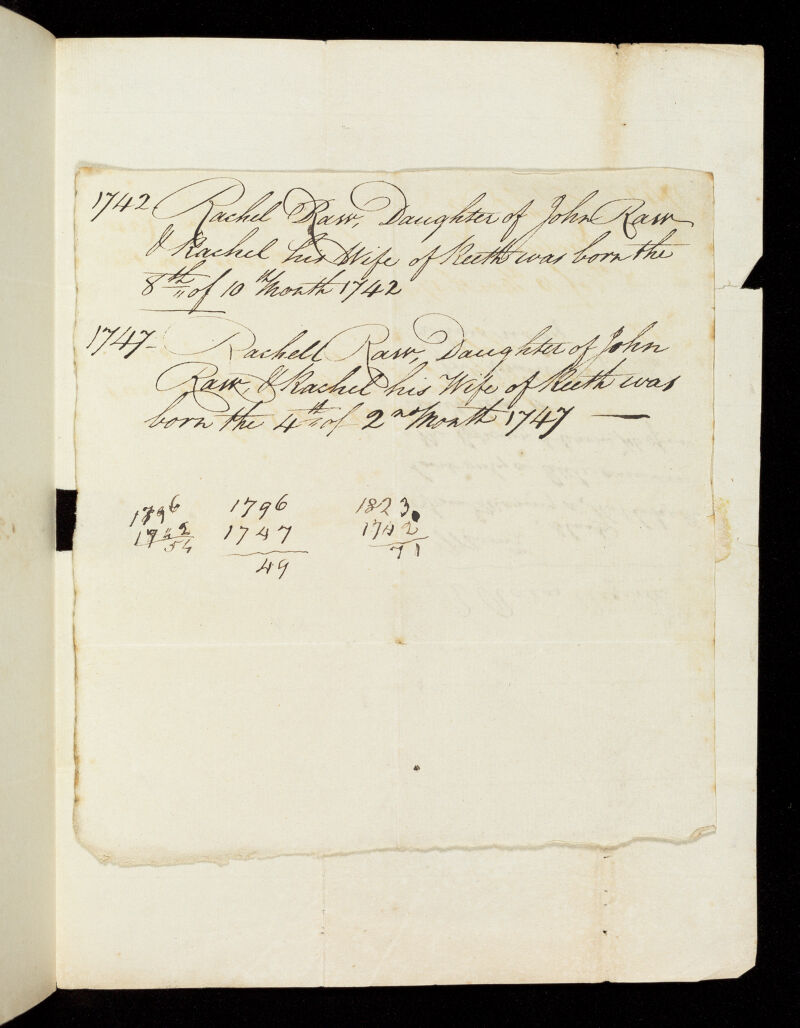 1742 Rachel Raw, Daughter of John Raw
& Rachel his Wife of Reeth was born the
8th of 10th Month 1742
1747 - Rachell Raw, Daughter of John
Raw, & Rachel his Wife of Reeth was
born the 4th of 2nd Month 1747 —
1796 1796 1823
1742 1747 1742
54 49 71